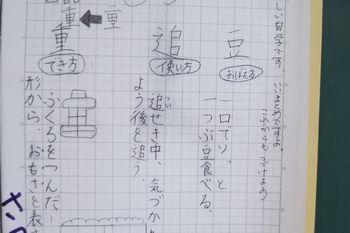 しい自学です。いいまとめですよ
これからもつづけよう
豆
おぼえ方
一口でソッと
一つぶ豆食べる。
追
使い方
追せき中、気づか
よう後を追う。
重
重
でき方
ふくろをつんだ
形から、おもさを表